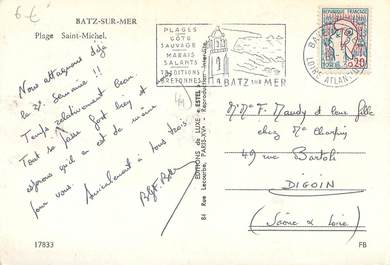 6 €
BATZ-SUR-MER
Plage Saint-Michel.
Nous attaquons déjà
la 2e semaine !!!
Temps relativement beau
Tout se passe fort bien et
espérons qu'il en est de même
pour vous. Amicalement à tous trois
44
ÉDITIONS DE LUXE "ESTEL"
84 Rue Lecourbe, PARIS-XVe
Reproduction interdite
17833
PLAGES
CÔTE
SAUVAGE
MARAIS
SALANTS
TRADITIONS
BRETONNES
A BATZ SUR MER
RÉPUBLIQUE FRANÇAISE
0,20
BATZ
LOIRE ATLANTIQUE
F. Maudy et leur fille
chez Me
49 rue Bartoli
DIGOIN
(Saône & Loire)
FB